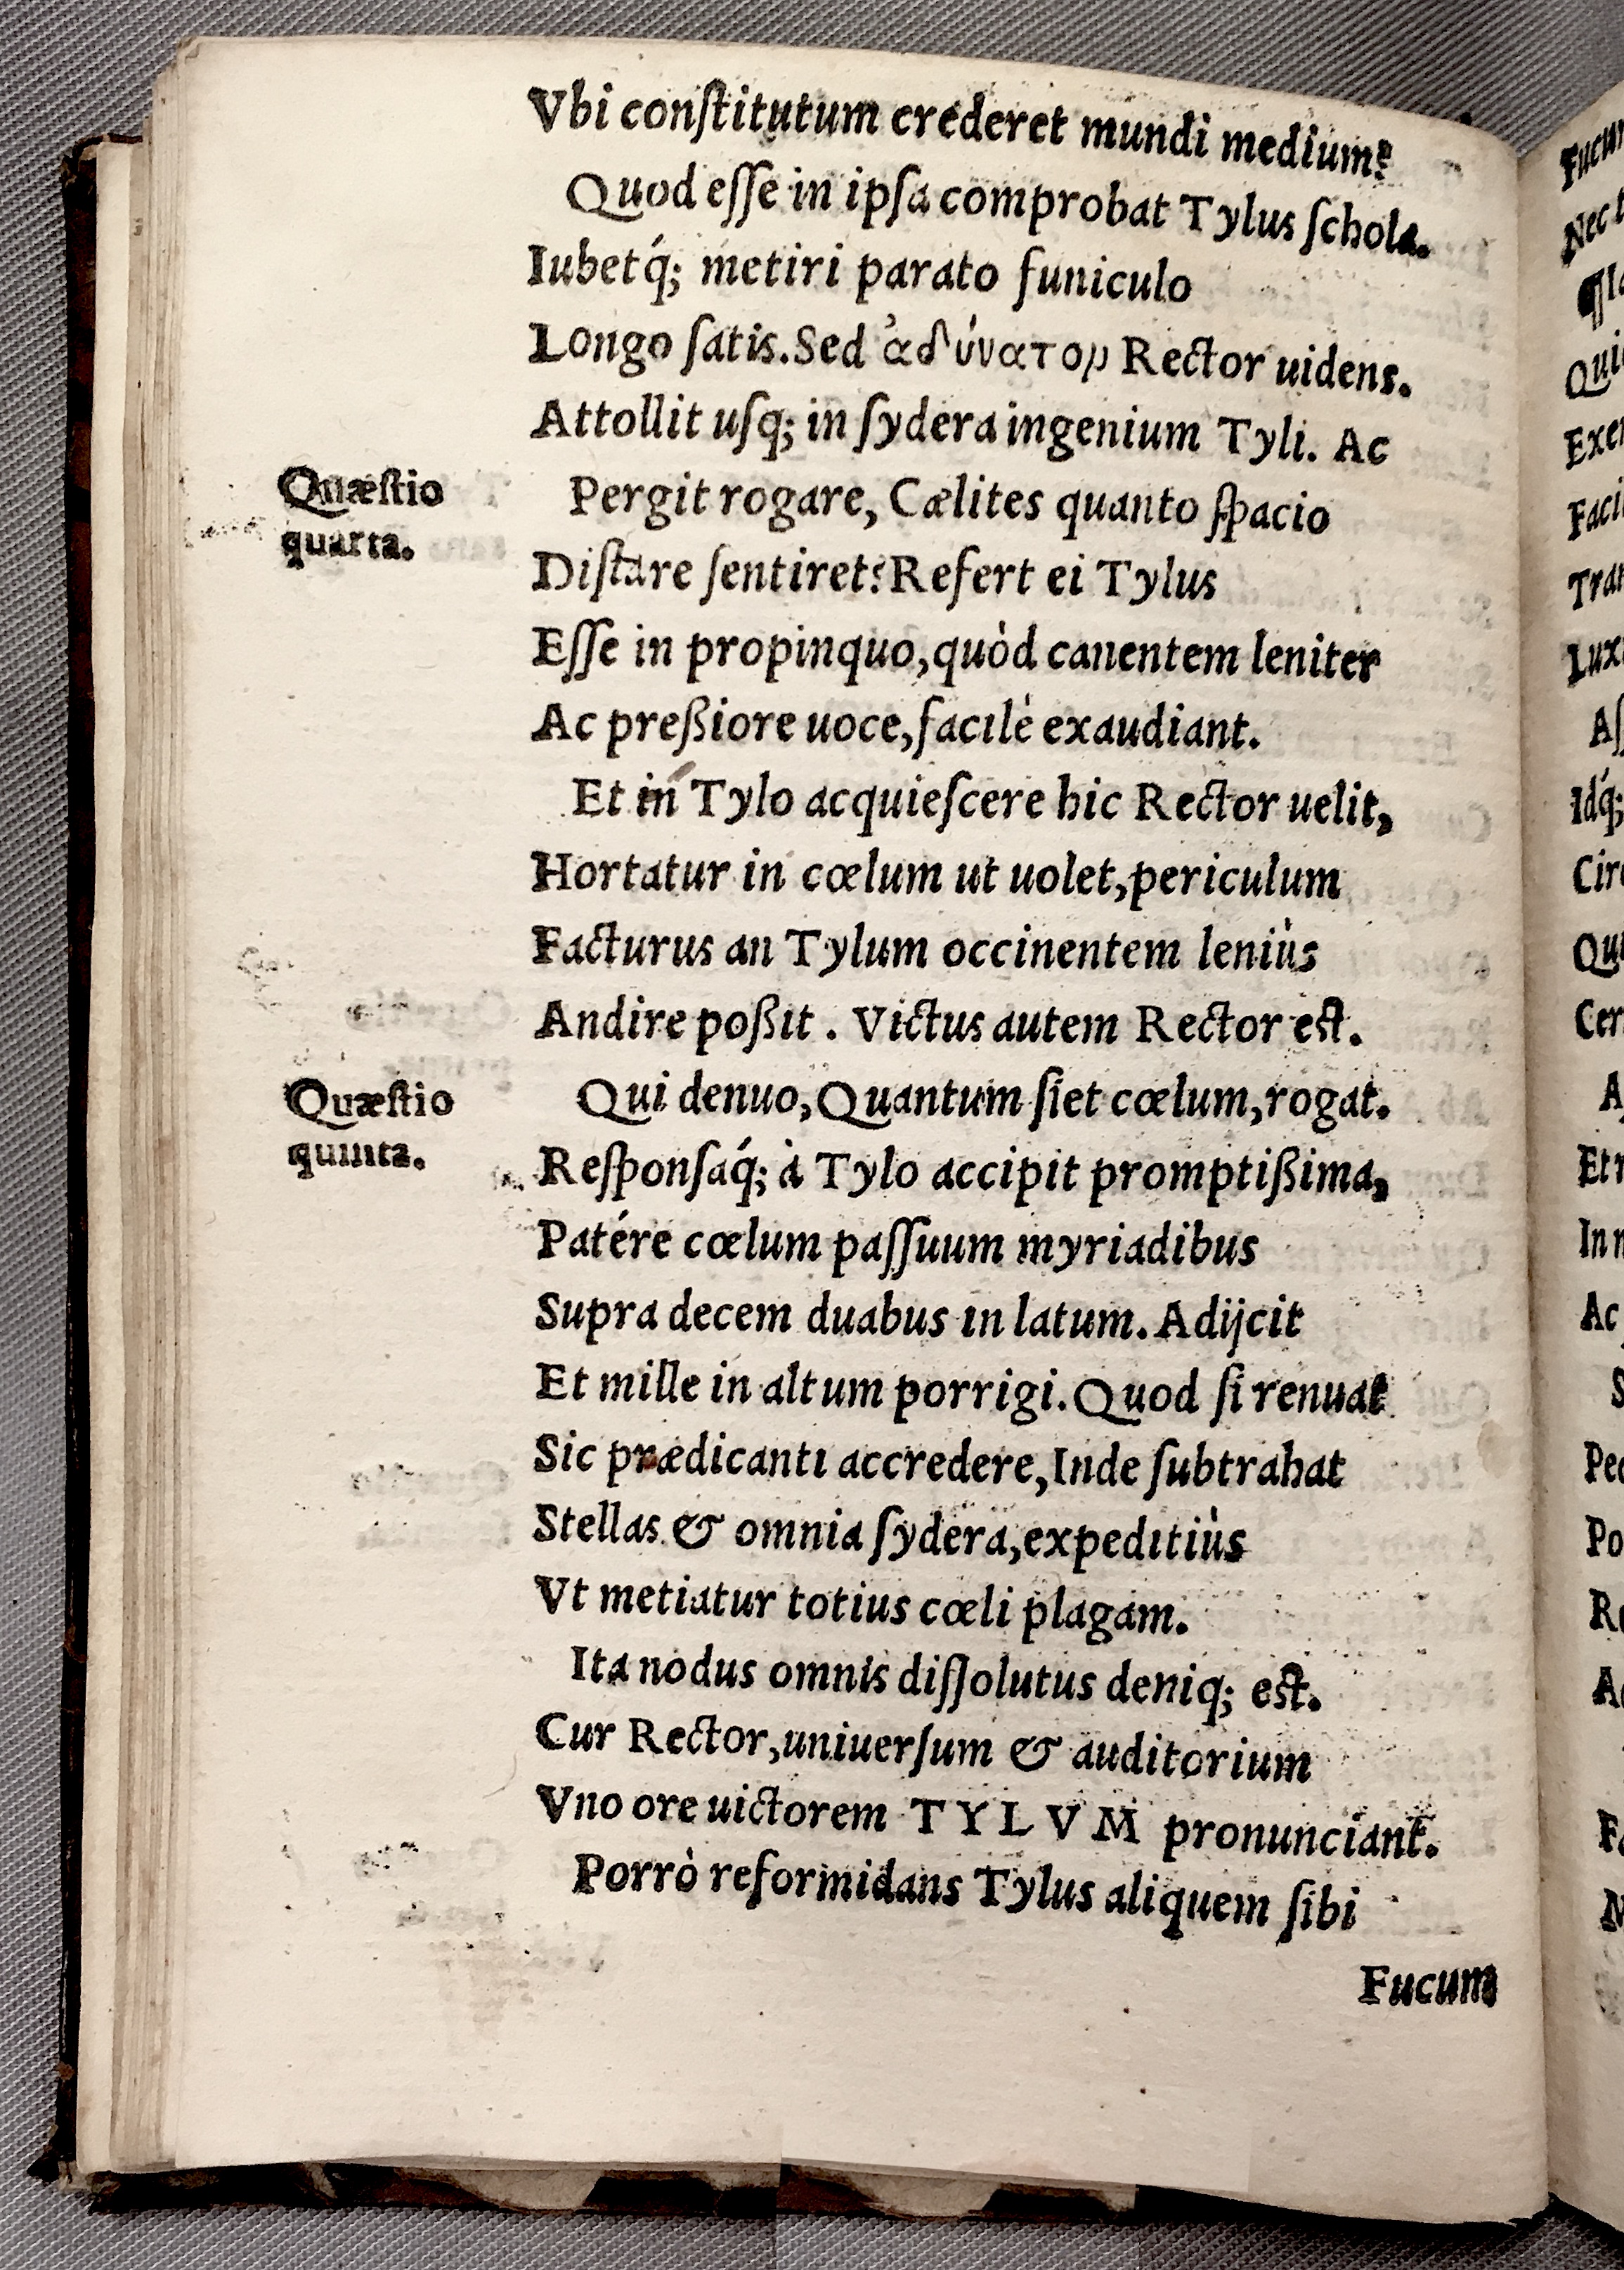 Vbi conſtitutum crederet mundi medium?
Quod eſſe in ipſa comprobat Tylus ſchola.
Iubetq́; metiri parato funiculo
Longo ſatis. Sed ἀδύνατον Rector uidens.
Attollit uſq; in ſydera ingenium Tyli. Ac
Quæſtio
quarta.
Pergit rogare, Cælites quanto ſpacio
Diſtare ſentiret? Refert ei Tylus
Eſſe in propinquo, quòd canentem leniter
Ac preßiore uoce, facilè exaudiant.
Et in Tylo acquieſcere hic Rector uelit,
Hortatur in cœlum ut uolet, periculum
Facturus an Tylum occinentem leniùs
Andire poßit. Victus autem Rector eſt.
Quæſtio
quinta.
Qui denuo, Quantum ſiet cœlum, rogat.
Reſponſaq́; à Tylo accipit promptißima,
Patére cœlum paſſuum myriadibus
Supra decem duabus in latum. Adijcit
Et mille in altum porrigi. Quod ſi renuat
Sic prædicanti accredere, Inde ſubtrahat
Stellas & omnia ſydera, expeditiùs
Vt metiatur totius cœli plagam.
Ita nodus omnis diſſolutus deniq; eſt.
Cur Rector, uniuerſum & auditorium
Vno ore uictorem TYLVM pronunciant.
Porrò reformidans Tylus aliquem ſibi
Fucum
Nec
Qui
Exe
Faci
Tra
Lux
Aſ
Idq́;
Cir
Qu
Cer
A
Et
In
Ac
S
Pe
Po
R
A
F